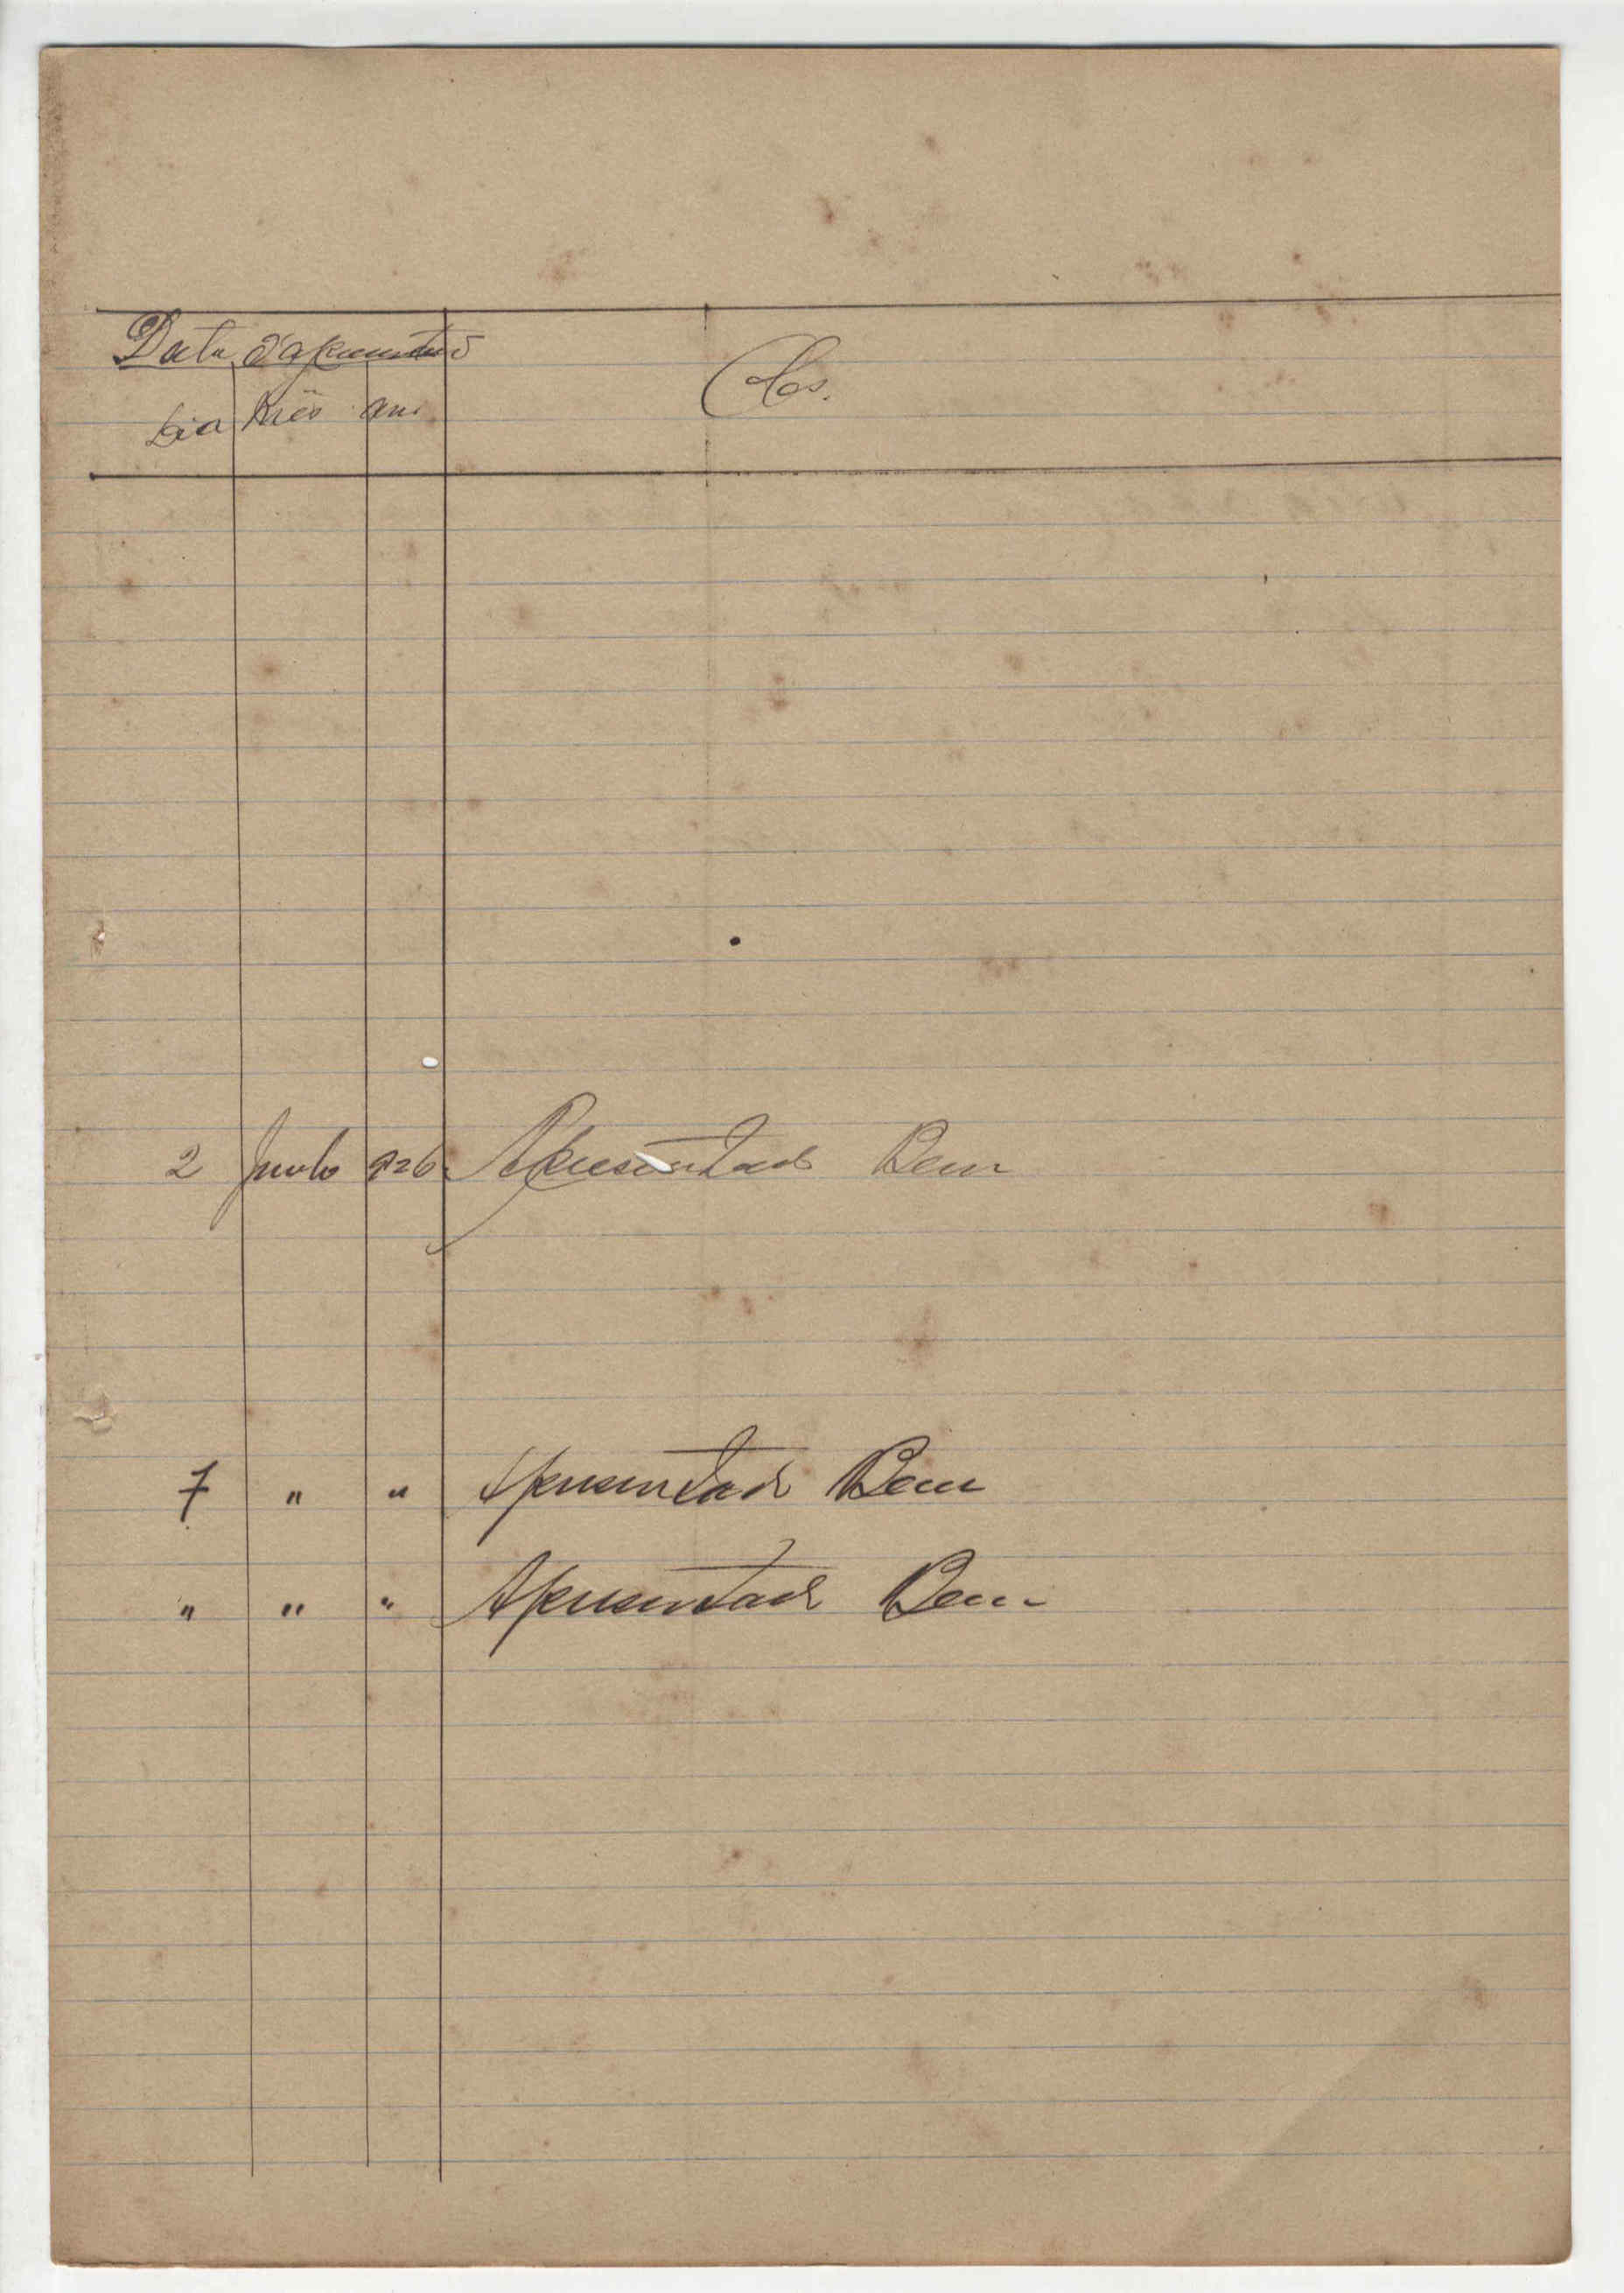 Data d'apresentaçõ
Obs.
Dia Mês ano
2 Junho 926 Apresentado Bem
7 " " Apresentado Bem
" " " Apresentado Bem